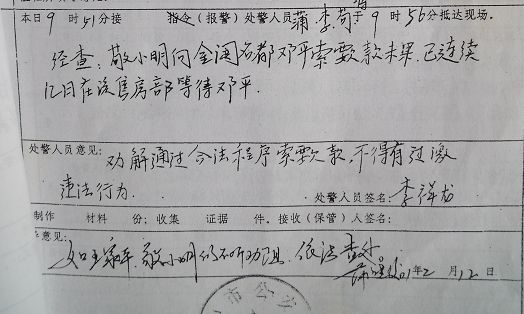 本日9时51分接 指令(报警)处警人员 蒲 李苟 于9时56分抵达现场.
经查:敬小明向金澜名都邓平索要款未果.已连续
12日在该售房部等待邓平.
处警人员意见: 劝解通过合法程序索要欠款,不得有过激
违法行为.
处警人员签名: 李祥龙
制作 材料 份;收集 证据 件.接收(保管)人签名:
意见:
敬小明仍不听劝阻.依法查处
年2月12日
市公安